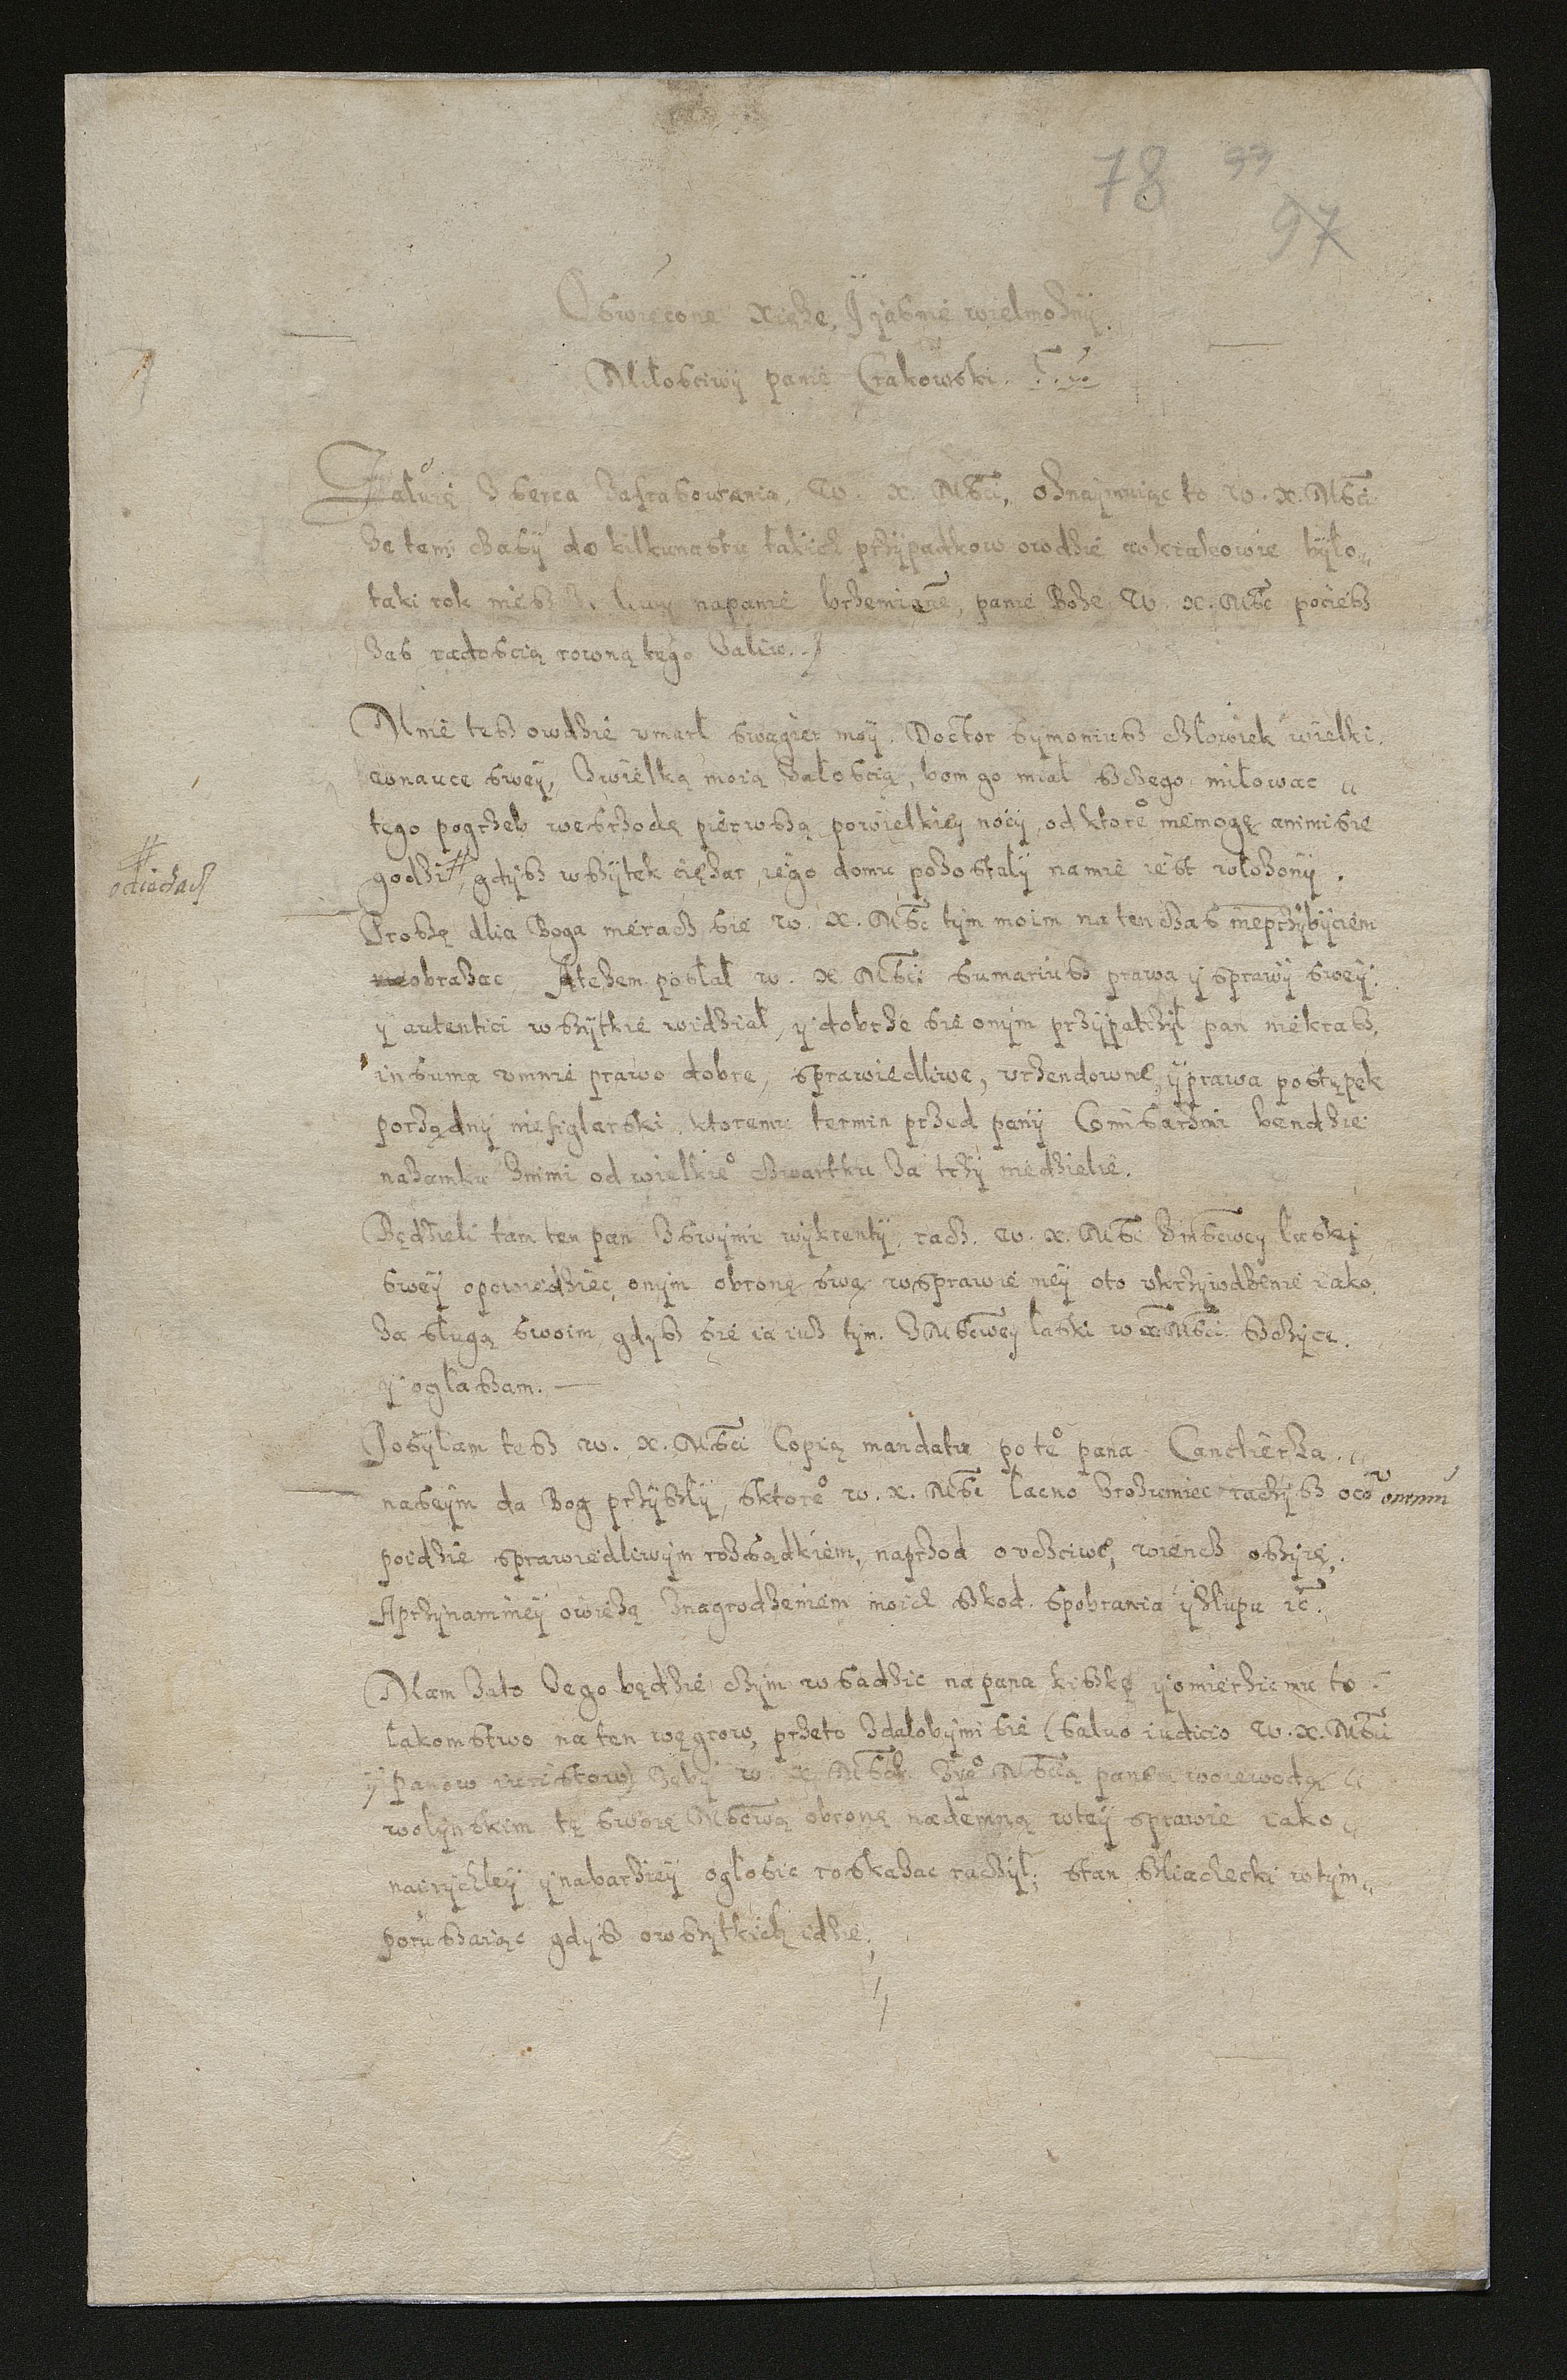 78 33
97
Oświęcone Xięże, Y jaśnie wielmożnÿ
Miłościwÿ panie Crakowski. 
Załuię z serca zafrasowania, W. X. Mści, oznaÿmuiąc to W. X. Mści
że temi czasÿ do kilkunastu takich przÿpadkow owdzie wokrakowie bÿło
taki rok niesz napanie brzemienne, panie Boże W. X. Mśc pociesz
zas radością rowną tego zaliu.
Mnie tesz owdzie vmarł swagier moÿ. Doctor sÿmoniusz człowiek wielki.
wonauce sweÿ, zwielką moią załoscią, bom go miał sczego miłowac
tego pogrzeb wesrzodę pierwszą powielkieÿ nocÿ, od ktore° niemogę animisie
godzi #, gdÿsz wszÿtek ciężar, iego domu pozostałÿ namie iest włożonÿ.
# odiachać
Proszę dlia Boga nieracz sie W. X. Mśc tÿm moim na ten czas nieprzÿbÿciem
obrażac. Atezem posłał W. X. Mści sumariusz prawa ÿ sprawÿ sweÿ.
ÿ autentici wszÿtkie widział, ÿ dobrze sie onÿm przÿpatrzÿł pan niekrasz.
in suma vmnie prawo dobre, sprawiedliwe, vrzendowne, ÿ prawa postępek
porządnÿ niefiglarski, ktoremu termin przed panÿ Comisarzmi bendzie
nazamku znimi od wielkie° czwartku za trzÿ niedzielie.
Będzieli tam ten pan zswÿmi wÿkrentÿ, racz. W. X. Mśc zmiłościwey łaskj
sweÿ opowiedziec onÿm obronę swą wsprawie meÿ oto vkrzÿwdzenie iako
za sługą swoim gdÿsz sie ia iusz tÿm. zMsciweÿ łaski W X. Mści sczÿce.
ÿ ogłaszam.
Posÿłam tesz W. X. Mści Copią mandatu po te° pana Canclierza
naseÿm da Bog przÿszłÿ, sktore° W. X. Mśc łacno zrozumiec raczÿsz oco omnium
poidzie sprawiedliwÿm rozsądkiem, naprzod o vczciwe, wiencz oszÿię,
Aprzÿnamnieÿ owieżę znagrodzeniem moich szkod. spobrania ÿ złupu ic.
Mam zato zego będzie czÿm wsadzic napana kiszkę ÿomierzicmu to
łakomstwo na ten węgrow, przeto zdałobÿmisie (saluo iudicio W. X. Mści
ÿ panow iuristow) zebÿ W. X. Mśc. zÿe° Mścią panem woiewodą
wołÿnskim tę swoię Mściwą obronę nademną wteÿ sprawie iako
nairÿchleÿ ÿ nabarzieÿ ogłosic roskazac raczÿł, stan szliachecki wtÿm
poruszaiąc gdÿsz owszÿtkich idzie.